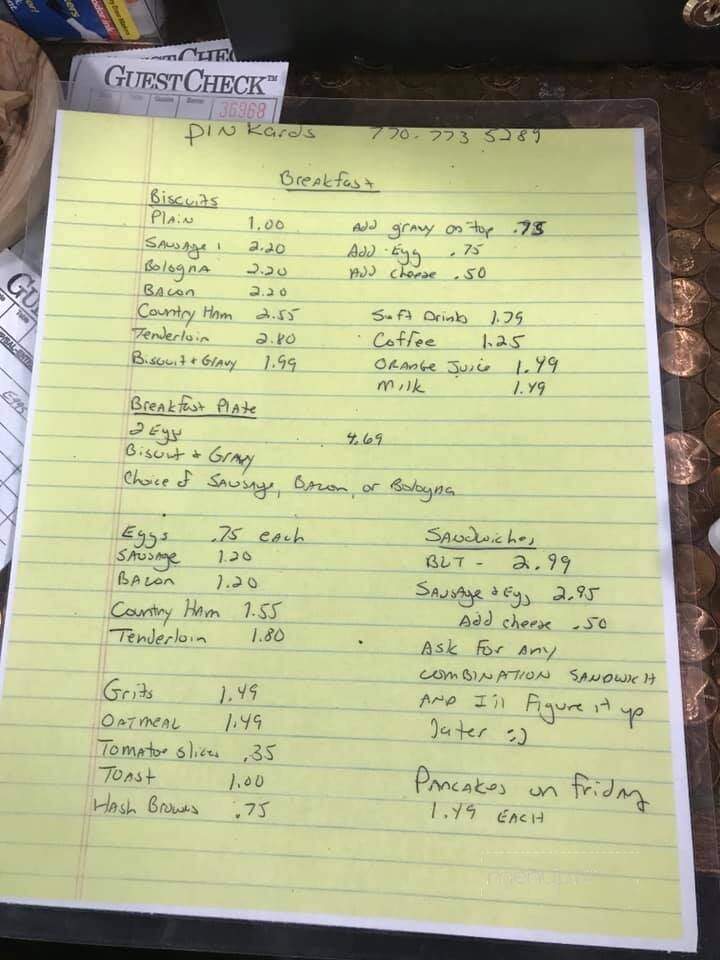 GUEST CHECK™
36968
PINKards 770.773 5289
Breakfast
Biscuits
PLAIN 1.00 Add gravy on top .75
SAUSAGE 2.20 Add Egg .75
Bologna 2.20 Add cheese .50
BACON 2.20
Country Ham 2.55 Soft Drinks 1.79
Tenderloin 2.80 Coffee 1.25
Biscuit & GRAVY 1.99 ORANGE Juice 1.49
milk 1.49
BREAKFAST Plate
2 Eggs 4.69
Biscuit & GRAVY
Choice of SAUSAGE, BACON, or Bologna
Eggs .75 each Sandwiches
SAUSAGE 1.20 BLT - 2.99
BACON 1.20 SAUSAGE & Egg 2.95
Country Ham 1.55 Add cheese .50
Tenderloin 1.80 ASK For Any
COMBINATION SANDWICH
Grits 1.49 AND I'll Figure it up
OATMEAL 1.49 later :)
Tomatoe slices .35
TOAST 1.00 PANCAKES on friday
HASH BROWNS .75 1.49 EACH